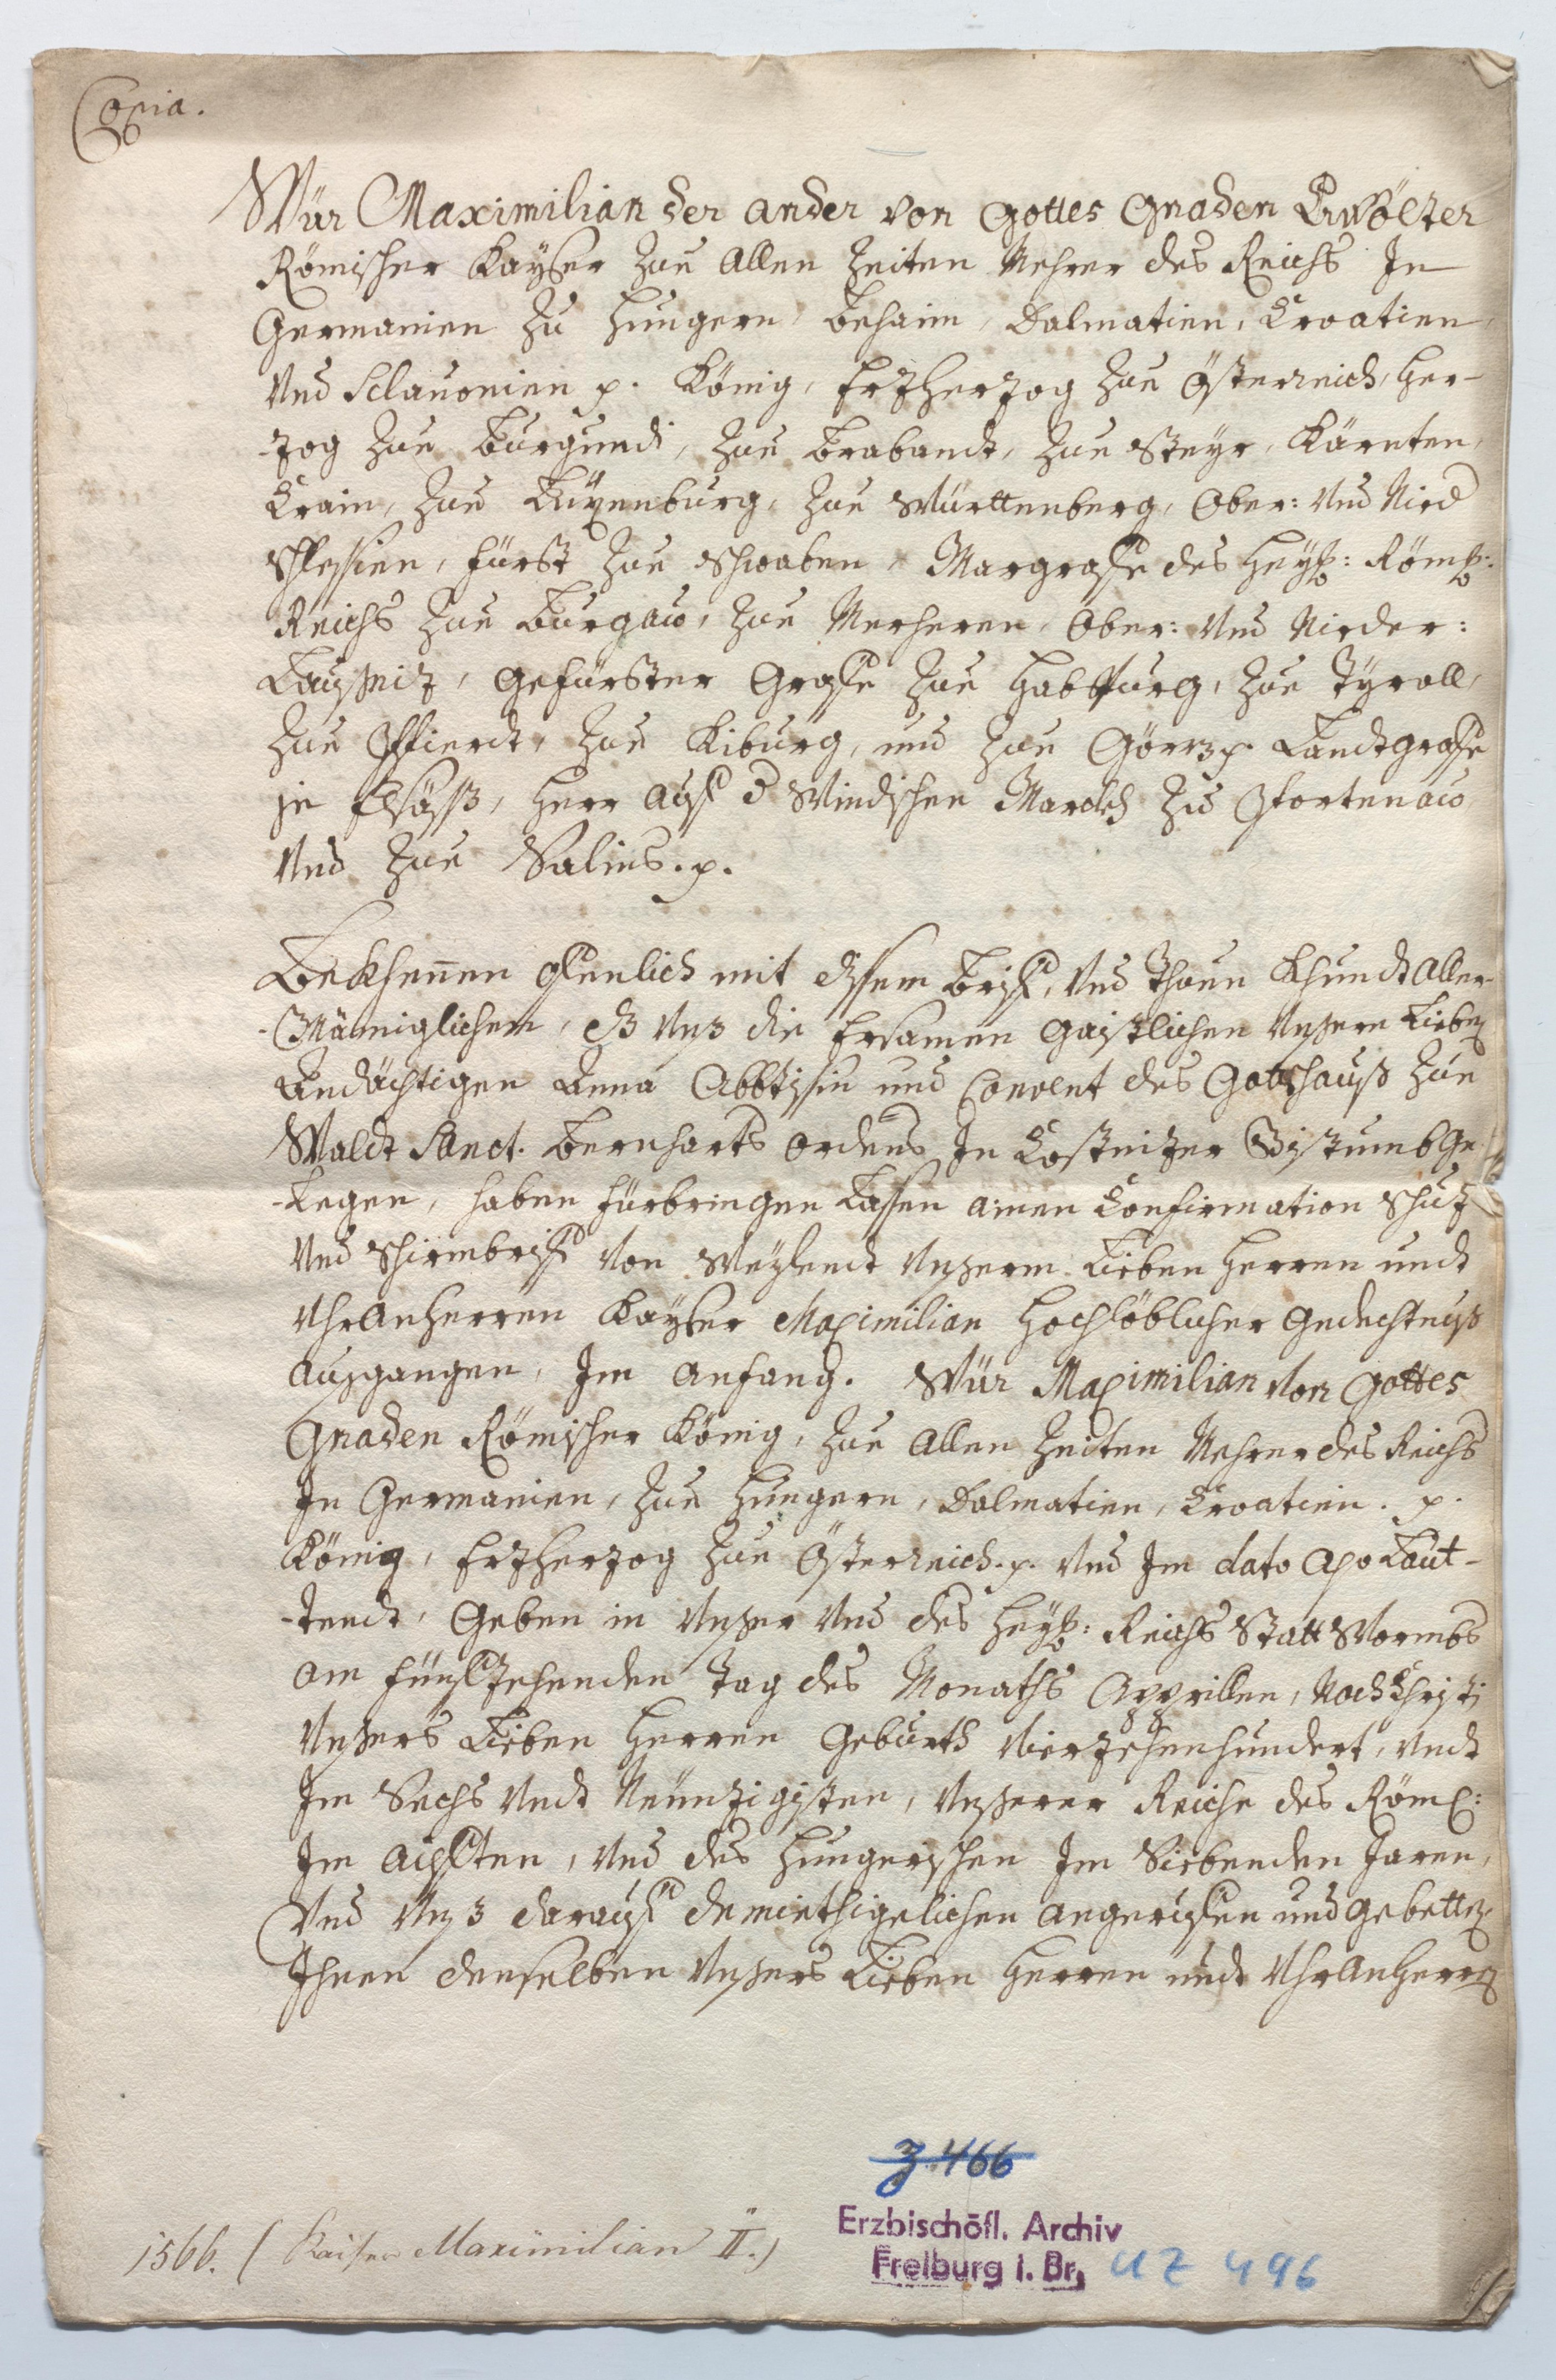 Copia.
Wür Maximilian der ander von Gottes Gnaden Erwölter
Römischer Kayser zue allen zeiten Mehrer des Reichs In
Germanien zu Hungern, Behaim, Dalmatien, Croatien,
Vnd Sclauonien p. König, Erzherzog zue Österreich, Her-
-zog zue Burgundi, zue Brabandt, zue Steyr, Kärnten,
Crain, zue Luzenburg, zue Württenberg, Ober: vnd Nied
Schlesien, Fürst zue Schwaben, Marggraffe des Heyl: Röml:
Reichs zue Burgaw, zue Merhern, Ober: vnd Nieder:
Laußniz, Gefürster Graffe zue Habspurg, zue Tyroll,
zue Pfierdt, zue Kiburg, und zue Görrz p. Landtgraffe
jn Elsäß, Herr auff d Windischen Marckh zu Portenaw
Vnd zue Salins. p.
Bekhennen offenlich mit disem Brieff, vnd Thuen Khundt aller-
-Mäniglichem, dz vnß die Ersamen Gaistlichen vnßern Lieben
Andächtigen Anna Abbtissin und Convent des Gottshauß zue
Waldt Sanct. Bernharts Ordens In Costnizer Bistumb Ge
-Legen, haben fürbringen Lassen ainen Confirmation Schuz
Vnd Schirmbrieff von Weylendt vnßerm Lieben Herren undt
VhrAnherren Kayser Maximilian Hochlöblicher Gedechtnuß
außgangen, Im anfang. Wür Maximilian von Gottes
Gnaden Römischer König, zue allen zeiten Mehrer des Reichs
In Germanien, zue Hungern, Dalmatien, Croatien. p.
König, Erzherzog zue Österreich. p. vnd Im dato also Laut-
-tendt, Geben in vnßer vnd des Heyl: Reichs Statt Wormbs
am fünffzehenden Tag des Monaths Apprillen, Nach Christi
Vnßers Lieben Herren Geburth vierzehenhundert, vndt
Im Sechs vndt Neünzigisten, vnßerer Reiche des Röml:
Im ailfften, vnd des Hungerischen Im Siebenden Jaren,
Vnd vnß darauff demiethigelichen angerüeffen und gebetten
Ihnen denselben vnßers Lieben Herren undt VhrAnherren
Z. 466
Erzbischöfl. Archiv
Freiburg i. Br.
UZ 496
1566. (Kaiser Maximilian II.)